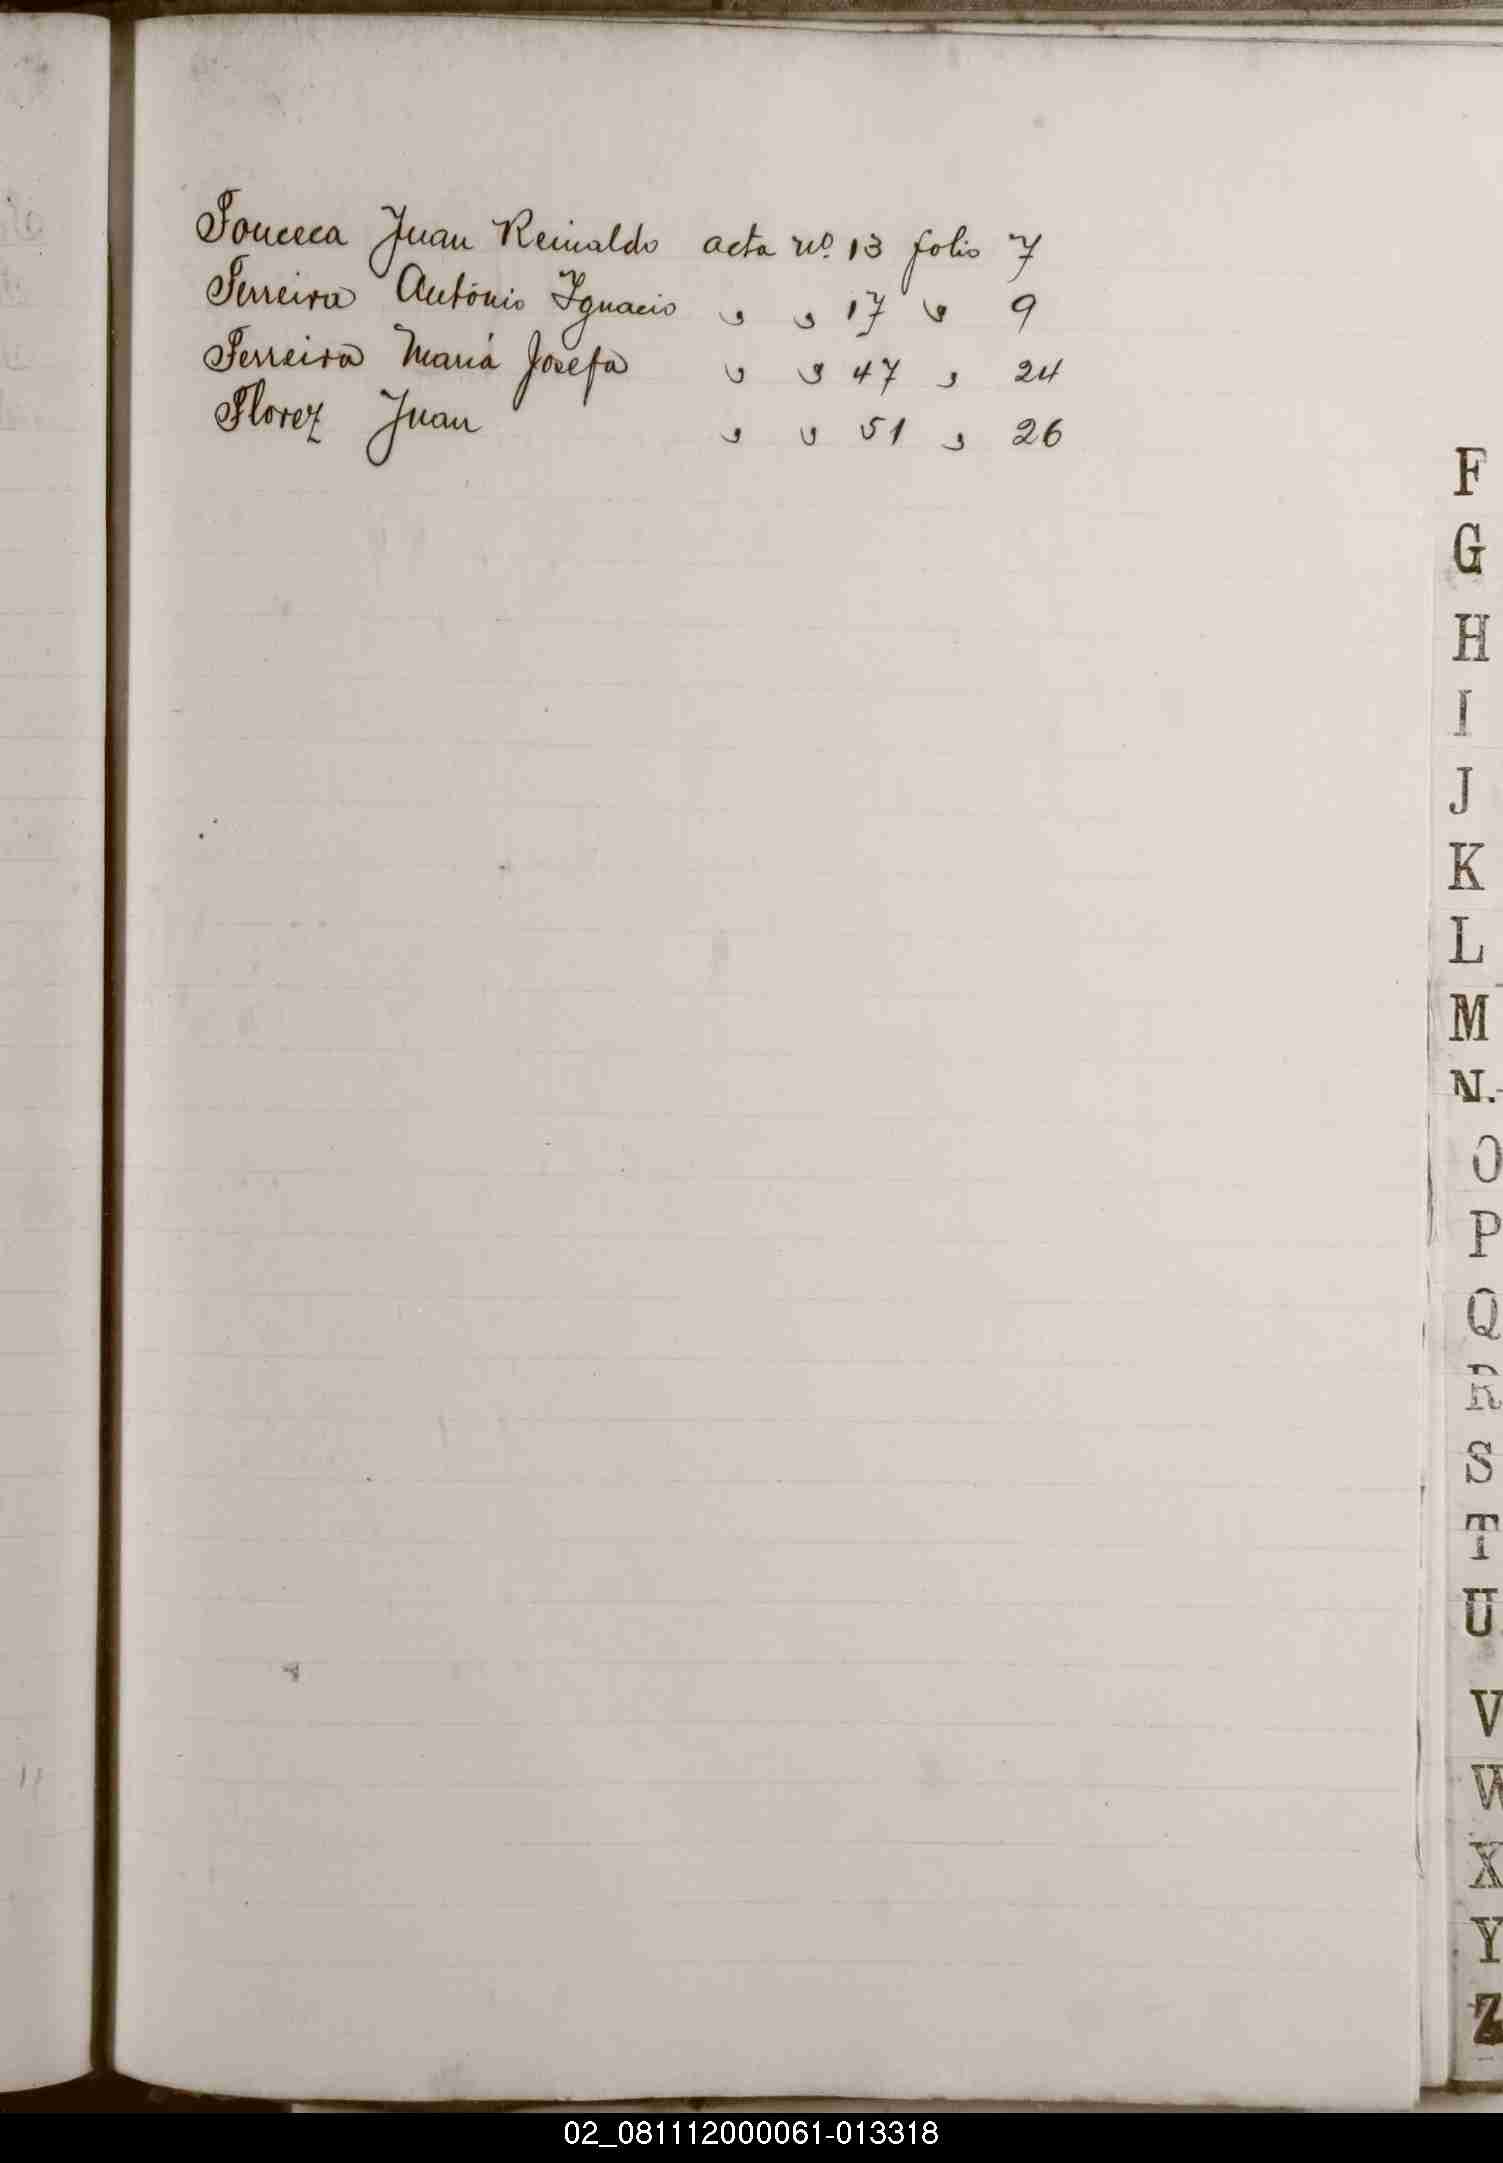 Fonceca Juan Reinaldo acta nº 13 folio 7
Ferreira António Ignacio " " 17 " 9
Ferreira Mariá Josefa " " 47 " 24
Florez Juan " " 51 " 26
F
G
H
I
J
K
L
M
N.
O
P
Q
R
S
T
U
V
W
X
Y
Z
02_081112000061-013318